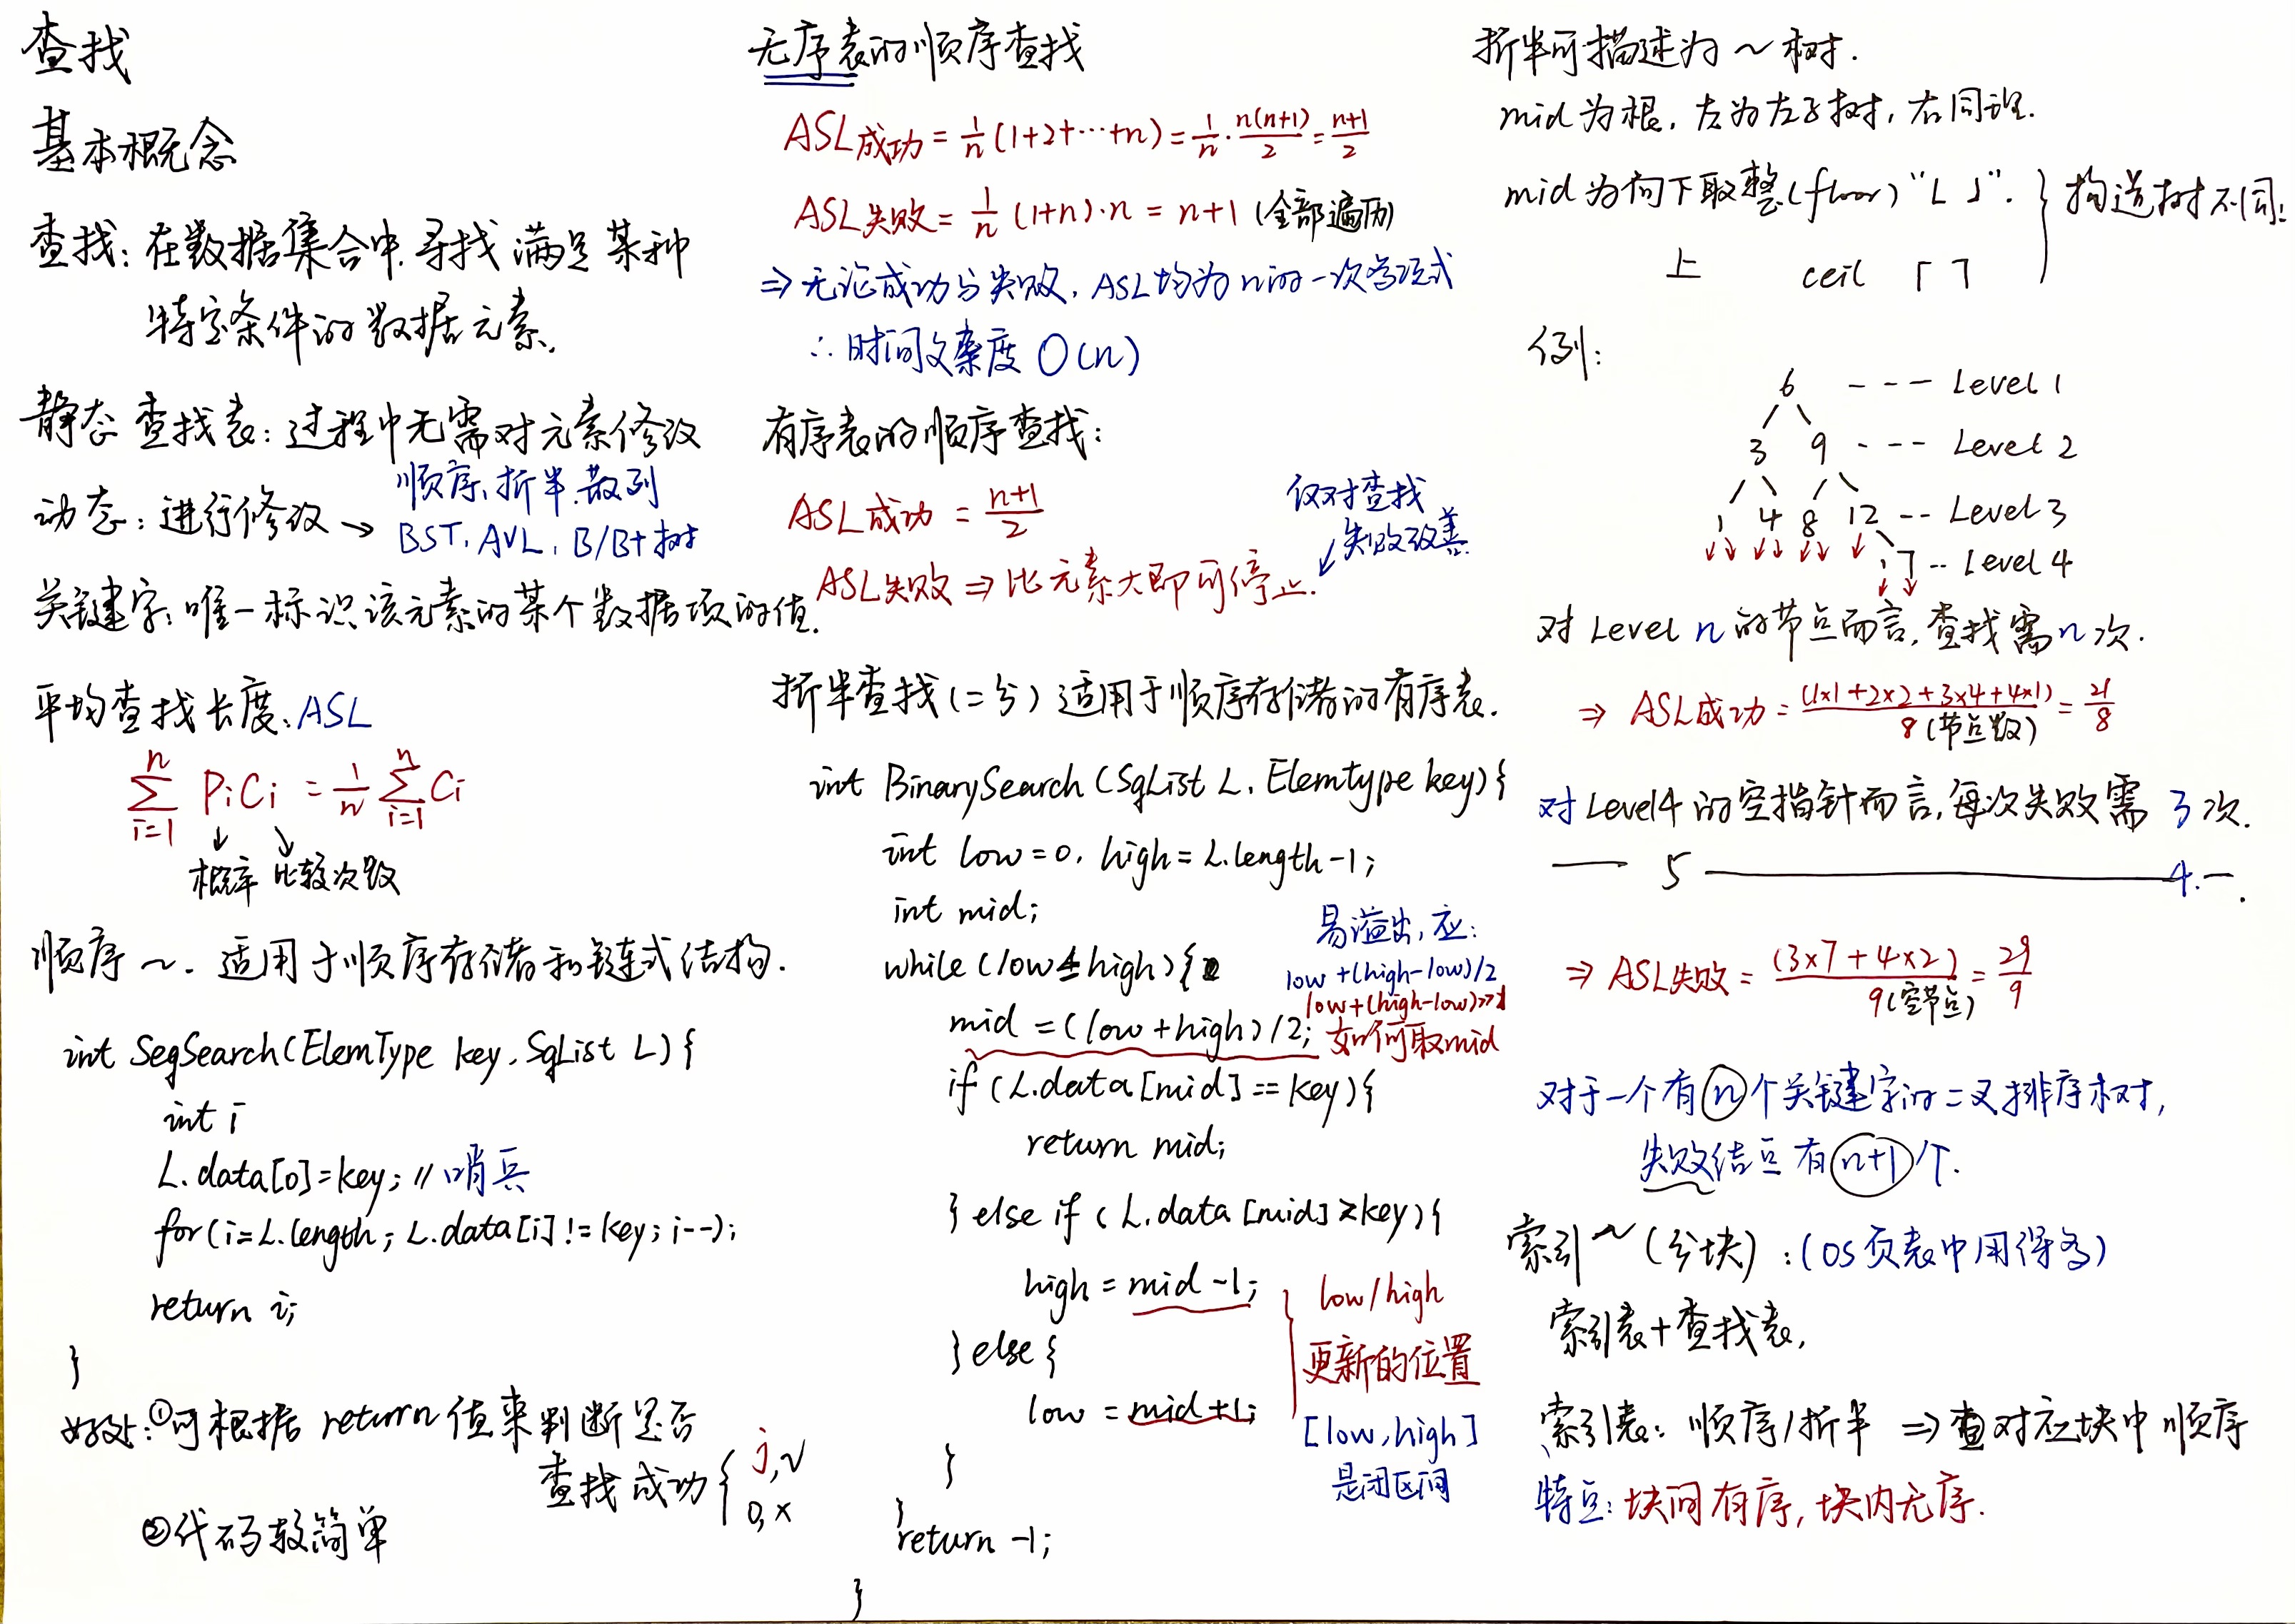 查找
基本概念
查找：在数据集合中寻找满足某种
特定条件的数据元素.
静态查找表：过程中无需对元素修改
动态：进行修改 → 顺序、折半、散列
BST、AVL、B/B+树
关键字：唯一标识该元素的某个数据项的值.
平均查找长度、ASL
n∑i=1 PiCi = 1/n n∑i=1 Ci
↓ ↘
概率 比较次数
顺序~. 适用于顺序存储和链式结构.
int SegSearch(ElemType key, SqList L){
int i
L.data[0]=key; // 哨兵
for(i=L.length; L.data[i]!=key; i--);
return i;
}
好处：①可根据 return 值来判断是否
查找成功 { j,√
0,×
②代码较简单
无序表的顺序查找
ASL成功 = 1/n (1+2+…+n) = 1/n · n(n+1)/2 = n+1/2
ASL失败 = 1/n (1+n)·n = n+1 (全部遍历)
⇒ 无论成功与失败，ASL均为n的一次多项式
∴ 时间复杂度 O(n)
有序表的顺序查找：
ASL成功 = n+1/2
仅对查找
↙失败改善.
ASL失败 ⇒ 比元素大即可停止.
折半查找(二分) 适用于顺序存储的有序表.
int BinarySearch(SqList L, Elemtype key){
int low=0, high=L.length-1;
int mid;
while(low≤high){
易溢出，应：
low+(high-low)/2
low+(high-low)>>1
mid=(low+high)/2; 如何取mid
if(L.data[mid]==key){
return mid;
}else if(L.data[mid]>key){
high=mid-1;
}else{
low=mid+1;
low/high
更新的位置
[low,high]
是闭区间
}
}
return -1;
}
折半可描述为~树.
mid为根，左为左子树，右同理.
mid为向下取整(floor)“⌊ ⌋”. } 构造树不同!
上 ceil ⌈ ⌉
例：
6 --- Level 1
3 9 --- Level 2
1 4 8 12 -- Level 3
17 -- Level 4
对Level n的节点而言，查找需n次.
⇒ ASL成功 = (1×1+2×2+3×4+4×1)/8(节点数) = 21/8
对Level4的空指针而言，每次失败需 3次.
—— 5 —— 4.—.
⇒ ASL失败 = (3×7+4×2)/9(空节点) = 29/9
对于一个有n个关键字的二叉排序树，
失败结点有n+1个.
索引~(分块)：(OS页表中用得多)
索引表+查找表，
索引表：顺序/折半 ⇒ 查对应块中顺序
特点：块间有序，块内无序.